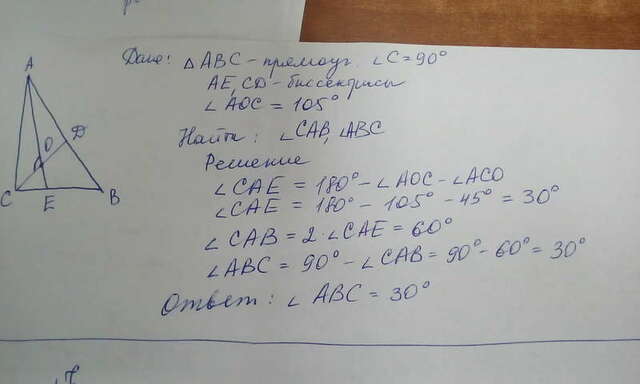 Дано: △ABC - прямоуг. ∠C = 90°
AE, CD - биссектрисы
∠AOC = 105°
Найти: ∠CAB, ∠ABC
Решение
∠CAE = 180° - ∠AOC - ∠ACO
∠CAE = 180° - 105° - 45° = 30°
∠CAB = 2·∠CAE = 60°
∠ABC = 90° - ∠CAB = 90° - 60° = 30°
Ответ: ∠ABC = 30°
A
O
D
C
E
B